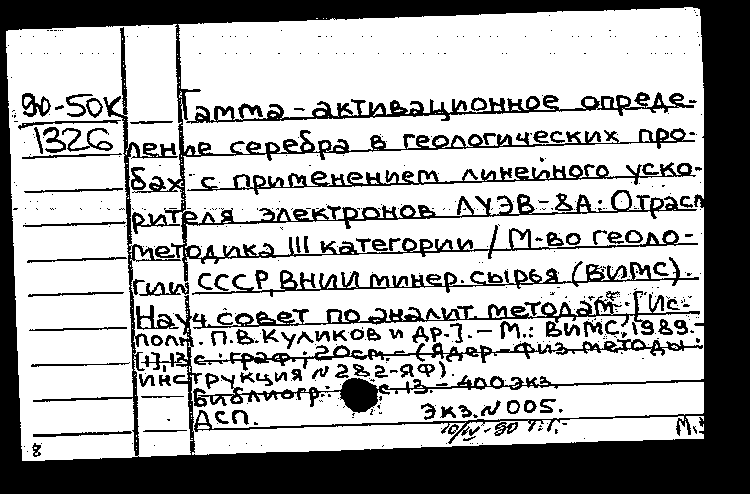 90-50К
1326
Гамма-активационное опреде-
ление серебра в геологических про-
бах с применением линейного уско-
рителя электронов ЛУЭВ-8А: Отрасл
методика III категории / М-во геоло-
гии СССР, ВНИИ минер. сырья (ВИМС).
Науч. совет по аналит. методам; [Ис-
полн. П.В. Куликов и др.]. - М.: ВИМС, 1989. -
[1], 13 с.: граф.; 20см. - (Ядер.-физ. методы:
инструкция N 282-ЯФ).
Библиогр.: с. 13. - 400 экз.
ДСП. Экз. N 005.
10/IV-90
М.
8